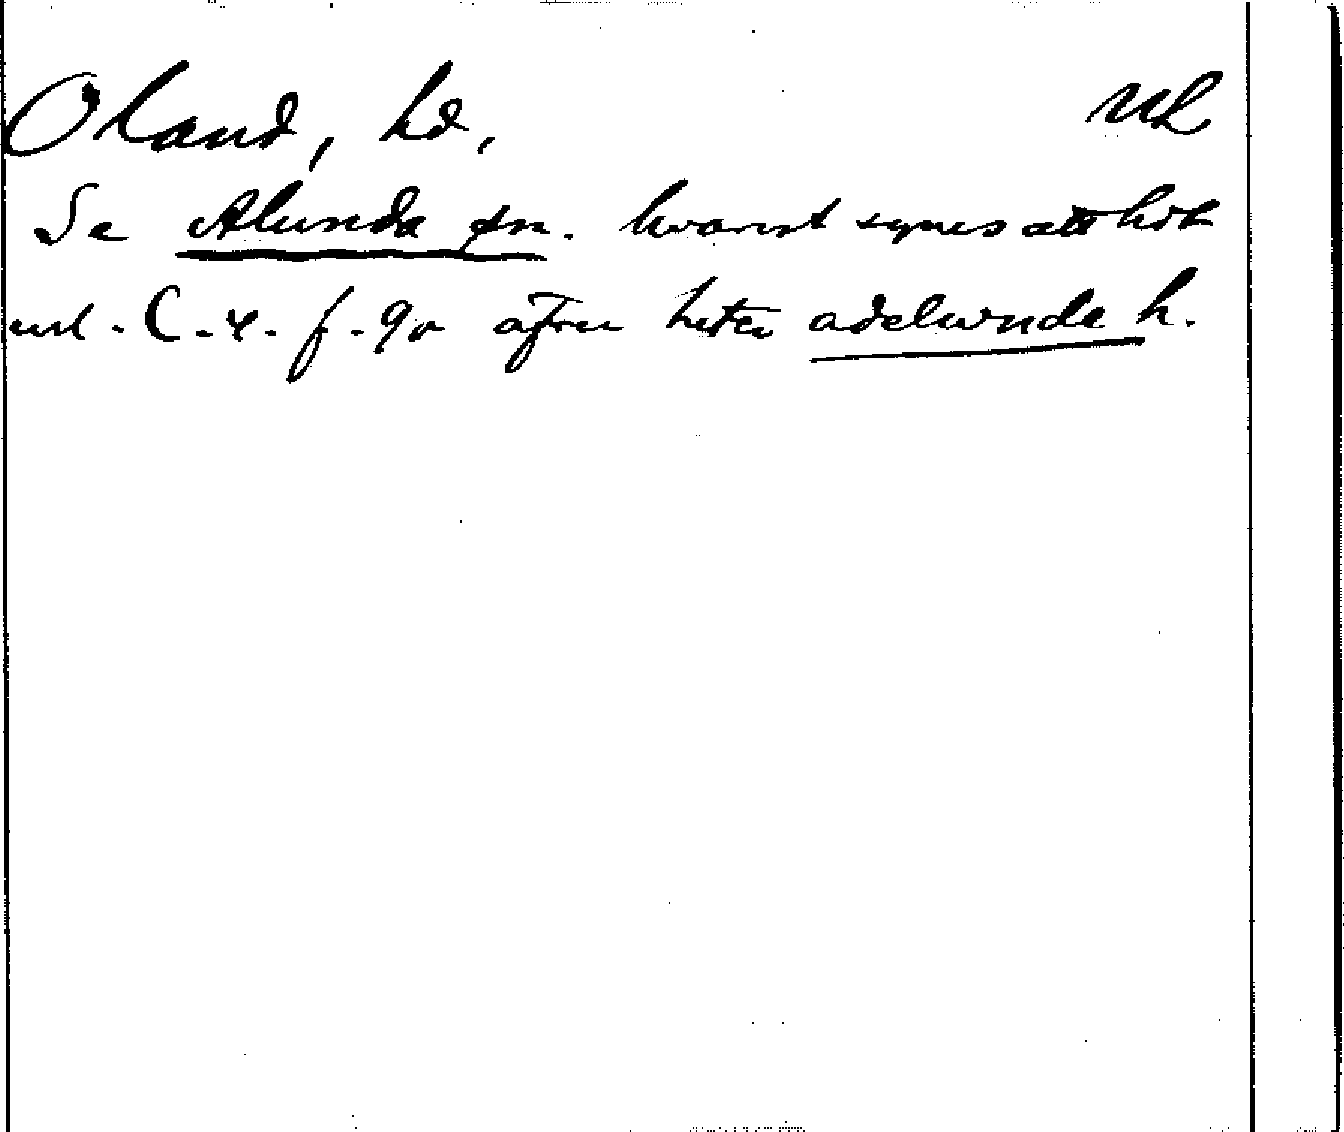 Oland, hd, UL
Se Alunda sn. hvarest synes att hdt
enl. C. 4. f. 90 äfven heter adelwnde h.